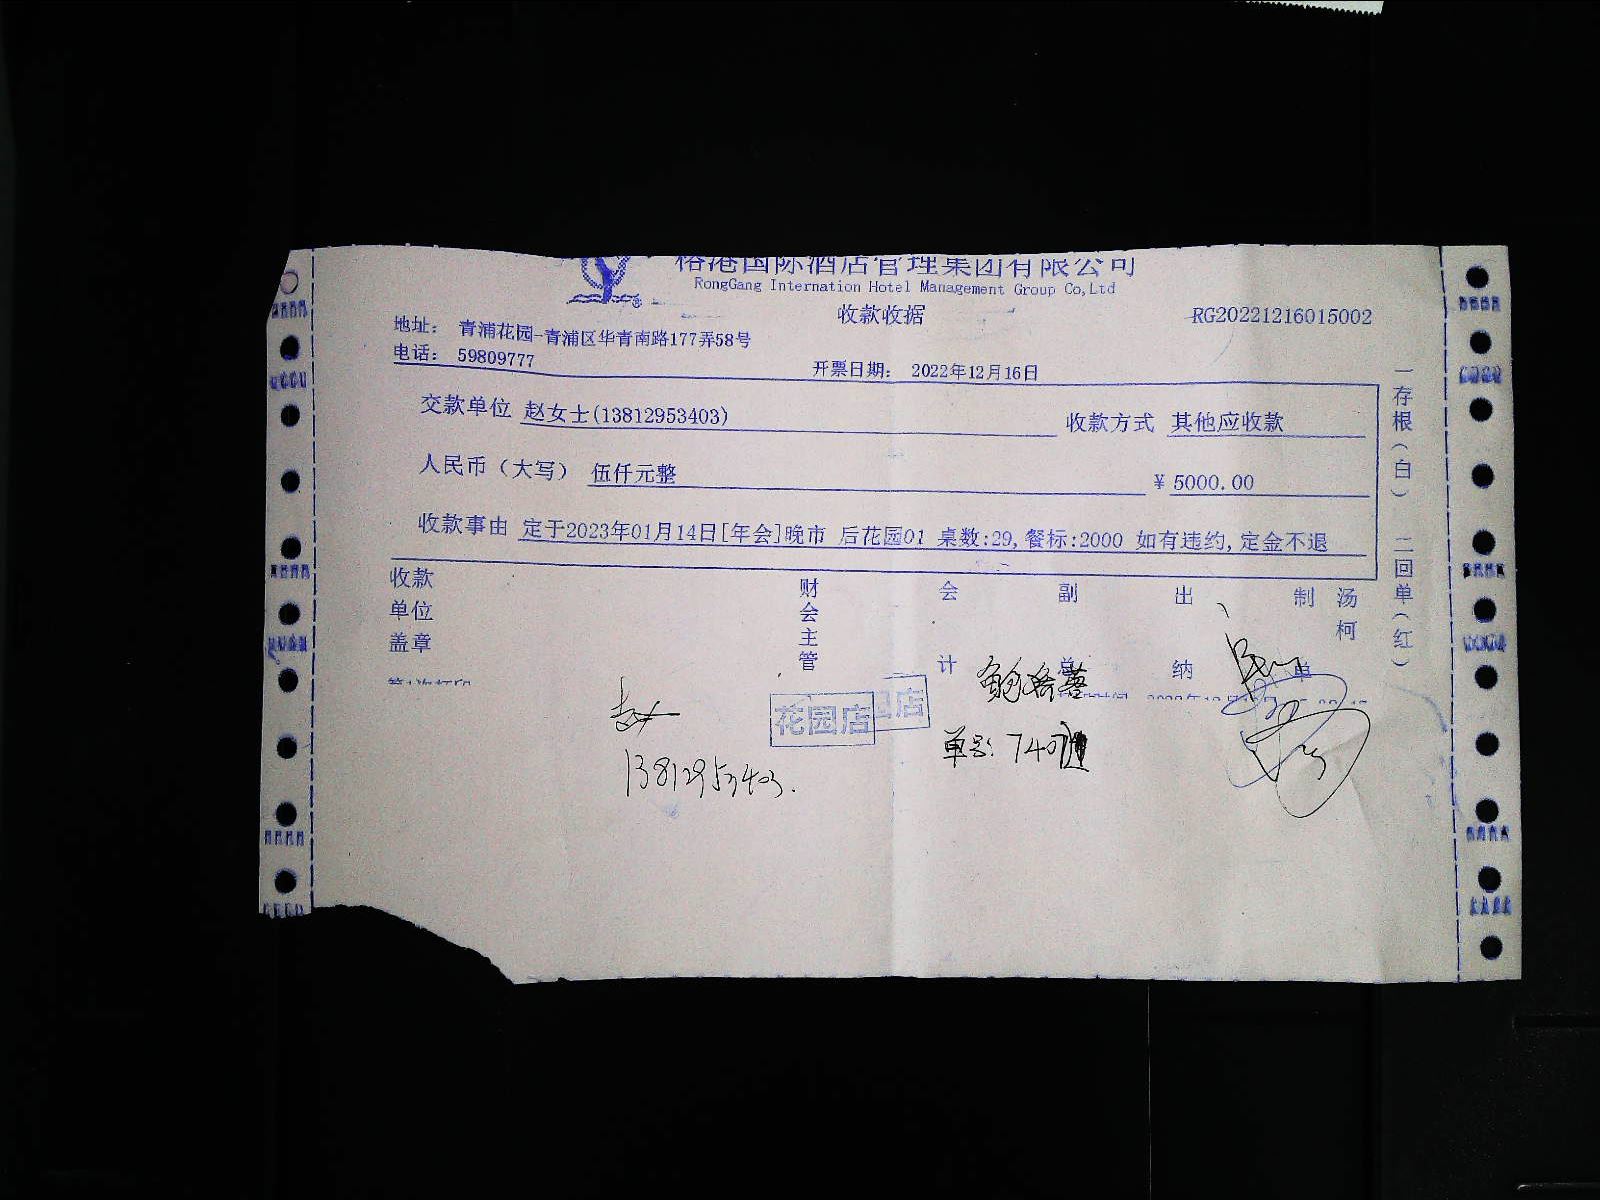 榕港国际酒店管理集团有限公司
RongGang Internation Hotel Management Group Co,Ltd
收款收据
RG20221216015002
地址： 青浦花园-青浦区华青南路177弄58号
电话： 59809777
开票日期： 2022年12月16日
交款单位 赵女士(13812953403) 收款方式 其他应收款
人民币（大写） 伍仟元整 ¥ 5000.00
收款事由 定于2023年01月14日[年会]晚市 后花园01 桌数:29,餐标:2000 如有违约,定金不退
收款单位盖章 财会主管 会计 副总 出纳 制单 汤柯
一存根（白） 二回单（红）
花园店
园店
13812953403.
单号: 7407